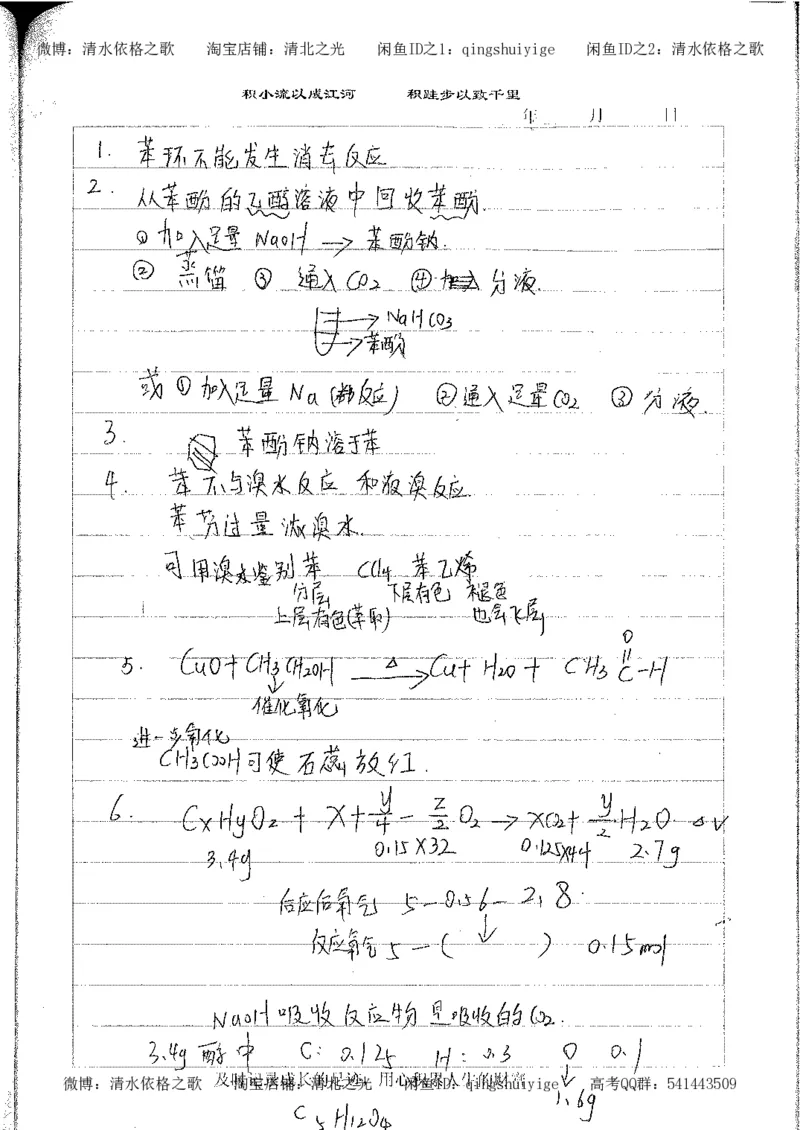 微博：清水依格之歌 淘宝店铺：清北之光 闲鱼ID之1：qingshuiyige 闲鱼ID之2：清水依格之歌
积小流以成江河 积跬步以致千里
年 月 日
1. 苯环不能发生消去反应
2. 从苯酚的乙醇溶液中回收苯酚.
① 加入足量 NaOH → 苯酚钠.
② 蒸馏 ③ 通入 CO2 ④ 分液.
→ NaHCO3
→ 苯酚
或 ① 加入足量 Na (都反应) ② 通入足量CO2 ③ 分液.
3. 苯酚钠溶于苯
4. 苯不与溴水反应 和液溴反应.
苯 过量 溴水.
可用溴水鉴别苯 CCl4 苯乙烯
分层 下层有色 褪色
上层有色(萃取) 也会
5. CuO + CH3CH2OH △→ Cu + H2O + CH3 C-H
O
催化氧化
进一步氧化
CH3COOH可使石蕊 红.
6. CxHyO2 + x+y/4-z/2 O2 → xCO2 + y/2 H2O ΔV
3.4g 0.15×32 0.125×44 2.7g
反应后氧气 5-0.56-2.8
反应氧气 5-( ) 0.15mol
NaOH 吸收反应物是吸收的CO2.
3.4g 醇中 C: 0.125 H: 0.3 O 0.1
微博：清水依格之歌 淘宝店铺：清北之光 闲鱼ID：qingshuiyige 高考QQ群：541443509
1.6g
C5H12O4